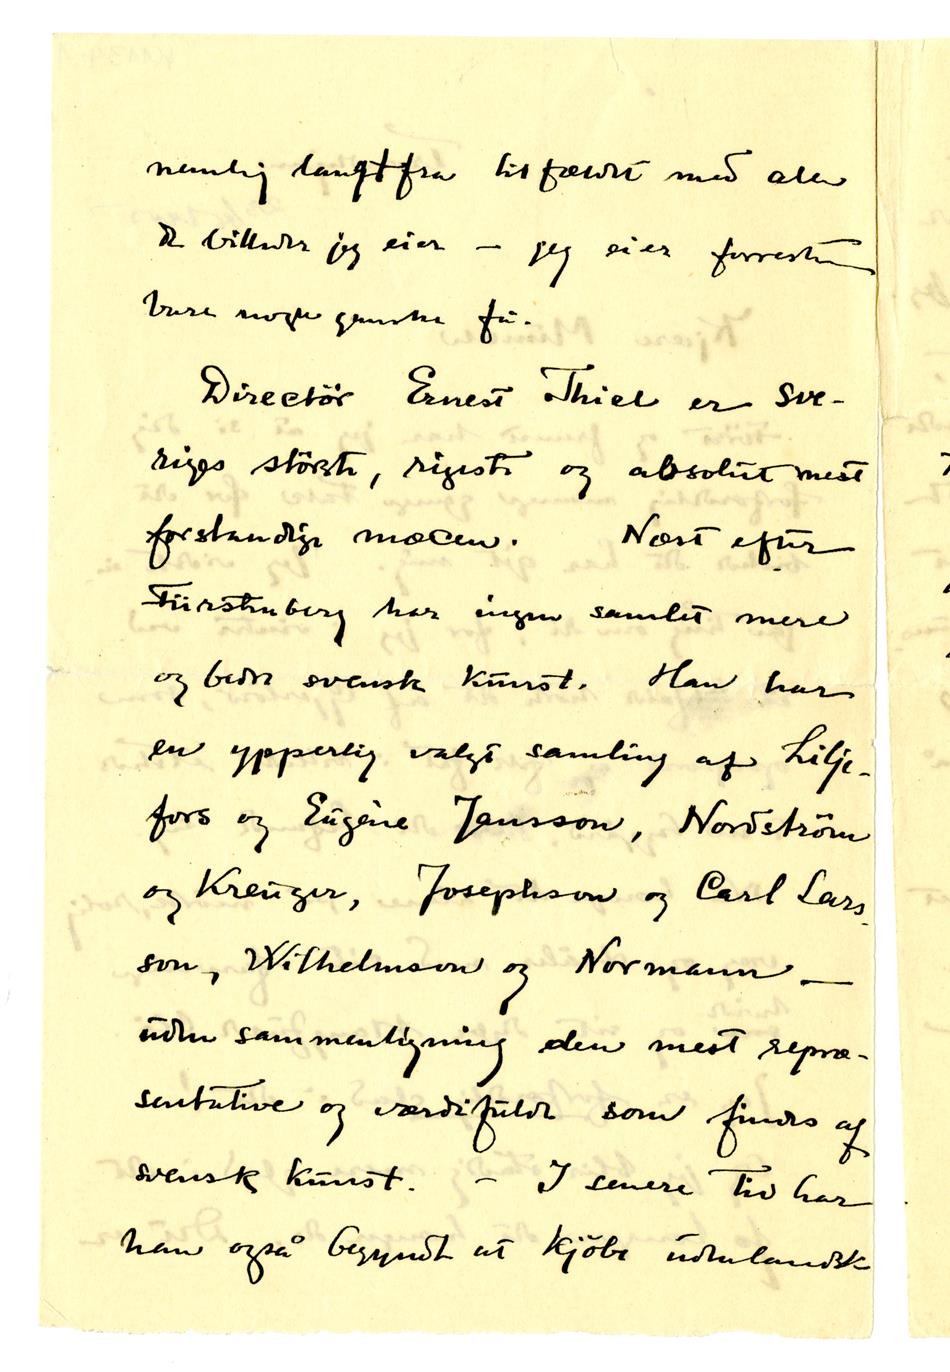 nemlig langtfra tilfældet med alle
de billeder jeg eier – jeg eier forresten
bare nogle ganske få.
Directör Ernest Thiel er Sve-
riges störste, rigeste og absolut mest
forstandige mæcen. Næst efter
Fürstenberg har ingen samlet mere
og bedre svensk kunst. Han har
en ypperlig valgt samling af Lilje-
fors og Eugène Jansson, Nordström
og Kreuger, Josephson og Carl Lars-
son, Wilhelmson og Normann –
uden sammenligning den mest repræ-
sentative og værdifulde som findes af
svensk kunst. – I senere tid har
han også begyndt at kjöbe udenlandsk